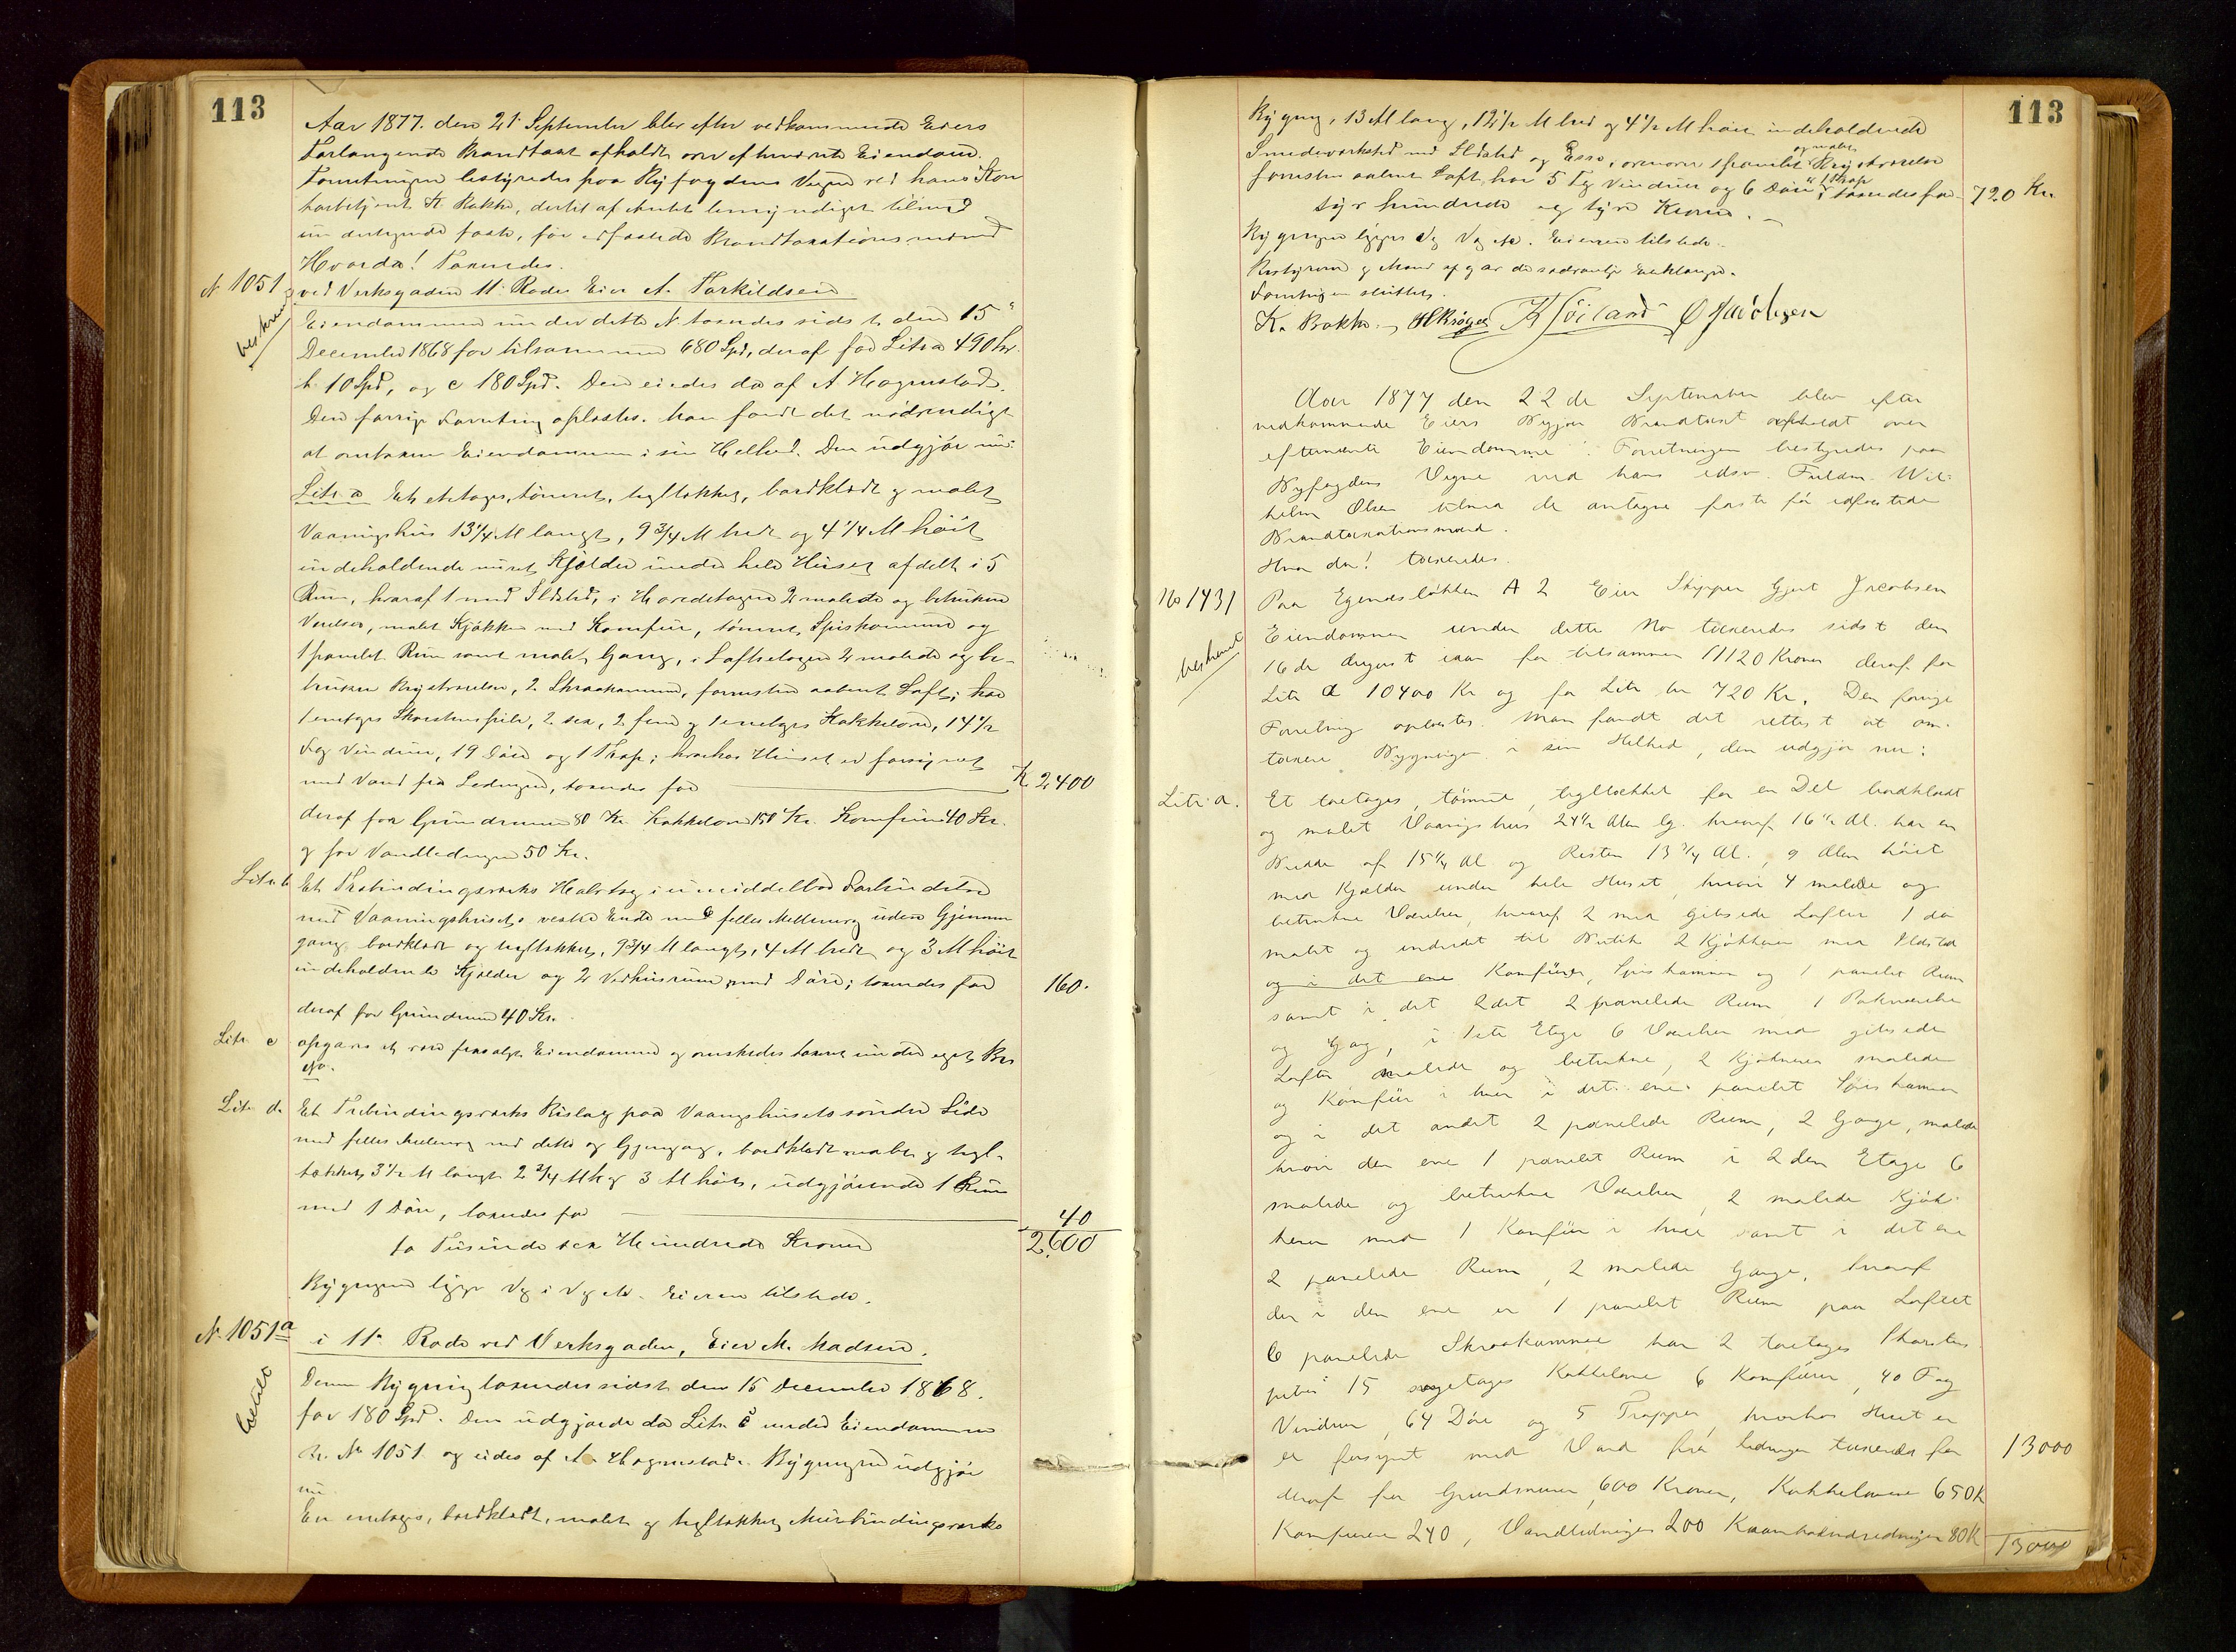 113
Aar 1877. den 21 September blev efter vedkommende Eiers
Forlangende Brandtaxt afholdt over efternævnte Eiendom.
Forretningen bestyredes paa Byfogdens Vegne ved hans Kon
torbetjent K. Bakke, dertil af Amtet bemyndiget tilmed
un dertegnede faste, før edfæstede Brandtaxationsmænd
Hvorda! Taxeredes.
N. 1051 ved Verksgaden 11 Rode Eier A. Torkildsen
beskreve
Eiendommen un der dette N taxeredes sidst den 15
December 1868 for tilsammen 680 Spd, deraf for Litr a 490 for
b. 10 Spd, og c 180 Spd. Den eiedes da af A Hognestad.
Den forrige Forretning oplæstes. Man fandt det nødvendigt
at omtaxere Eiendommen i sin Helhed. Den udgjør nu:
Litr a Et etetages, tømret, tegltækket, bordklædt og malet
Vaaningshus 13 1/4 Al langt, 9 3/4 Al bredt og 4 1/4 Al høit
indeholdende muret Kjælder under hele Huset afdelt i 5
Rum, hvoraf 1 med Ildsted, i Hovedetagen 2 malede og betrukne
Værelser, malet Kjøkken med Komfur, tømret Spiskammer og
1 panelet Rum samt malet Gang, i Loftsetagen 2 malede og be-
trukne Kvistværelser, 2 Skraakammer, forresten aabent Loft; har
1 enetages Skorstenspibe, 2 sex, 2 fem og 1 enetages Kakkelovn, 14 1/2
Fag Vinduer, 19 Døre og 1 Trap; hvorhos Huset er forsynet
med Vand fra Ledningen, taxeredes for K 2400
deraf for Grundmuren 80 Kr. Kakkelovne 150 Kr. Komfuren 40 Kr.
og for Vandledningen 50 Kr.
Litr b Et Trebindingsværks Halvtag i umiddelbar Forbindelse
med Vaaningshusets vestre Ende med fælles Mellemvæg uden Gjennem
gang, bordklædt og tegltækket, 9 3/4 Al langt, 4 Al bredt og 3 Al høit
indeholdende Kjælder og 2 Vedhusrum, med Døre; taxeredes for 160.
deraf for Grundmuren 40 Kr.
Litr c opgaves at være frasolgt Eiendommen og ønskedes taxeret under eget Br
No.
Litr d. Et Trebindingsværks Bislag paa Vaaningshusets søndre Side
med fælles Mellemvæg med dette og Gjennemgang, bordklædt malet og tegl-
tækket, 3 1/2 Al langt 2 3/4 Al br og 3 Al høit, udgjørende 1 Rum
med 1 Døre, taxeredes for 40
to Tusinde sex Hundrede Kroner 2.600
Bygningen ligger Vg i Vg etc. Eieren tilstede.
N. 1051 a i 11 Rode ved Verksgaden, Eier M. Madsen.
betalt
Denne Bygning taxeredes sidst den 15 December 1868.
for 180 Spd. Den udgjorde da Litr c under Eiendommen
Br. No 1051. og eides af A Hognestad. Bygningen udgjør
nu
En enetages, bordklædt, malet og tegltækket Murbindingsværks
113
Bygning, 13 Al lang, 12 1/2 Al bred og 4 1/2 Al høi indeholdende
og malet
Smedeværksted med Ildsted og Esse, ovenover 1 panelet Kvistværelse
1 Trap
forresten aabent Loft, har 5 Fag Vinduer og 6 Døre, taxeredes for 720 Kr.
syv hundrede og tyve Kroner.
Bygningen ligger Vg Vg etc. Eieren tilstede.
Bestyreren og Mænd afgav de sædvanlige Erklæringer.
Forretningen sluttet.
K. Bakke. H Krøger K Høiland O Jacobsen
Aar 1877 den 22 de September blev efter
vedkommende Eiers Begjær Brandtaxt afholdt over
efternævnte Eiendomme. Forretningen bestyredes paa
Byfogdens Vegne ved hans edsv. Fuldm. Wil-
helm Olsen tilmed de antagne faste før edfæstede
Brandtaxationsmænd.
Hvor da! taxeredes.
No 1431 Paa Egenesløkken A 2 Eier Skipper Gjert Jacobsen
beskreve
Eiendommen under dette No taxeredes sidst den
16 de August iaar for tilsammen 11120 Kroner deraf for
Litr a 10400 Kr og for Litr b 720 Kr. Den forrige
Forretning oplæstes. Man fandt det rettest at om-
taxere Bygningen i sin Helhed, den udgjør nu:
Litr. a. Et toetages, tømret, tegltækket for en Del bordklædt
og malet Vaaningshus 24 1/2 Alen lg. hvoraf 16 1/2 Al. har en
Bredde af 15 1/4 Al og Resten 13 3/4 Al., 9 Alen høit
med Kjælder under hele Huset, hvori 4 malede og
betrukne Værelser, hvoraf 2 med gibsede Lofter 1 do
malet og indredet til Butik 2 Kjøkkener med Ildsted
og i det ene Komfurer, Spiskammer og 1 panelet Rum
samt i det 2det 2 panelede Rum, 1 Pakværelse
og Gang, i 1ste Etage 6 Værelser med gibsede
Lofter malede og betrukne, 2 Kjøkkener malede
og Komfur i hver i det ene panelet Spiskammer
og i det andet 2 panelede Rum, 2 Gange, malede
hvori den ene 1 panelet Rum i 2den Etage 6
malede og betrukne Værelser, 2 malede Kjøk-
kener med 1 Komfur i hver samt i det ene
2 panelede Rum, 2 malede Gange, hvoraf
der i den ene er 1 panelet Rum paa Loftet
6 panelede Skraakammer har 2 toetages Skorstens
piber 15 etages Kakkelovne 6 Komfurer, 40 Fag
Vinduer, 64 Døre og 5 Trapper, hvorhos Huset er
er forsynet med Vand fra ledningen taxeredes for 13000
deraf for Grundmuren 600 Kroner, Kakkelovnene 650 K
Komfurene 240, Vandledningen 200 80 K 13000